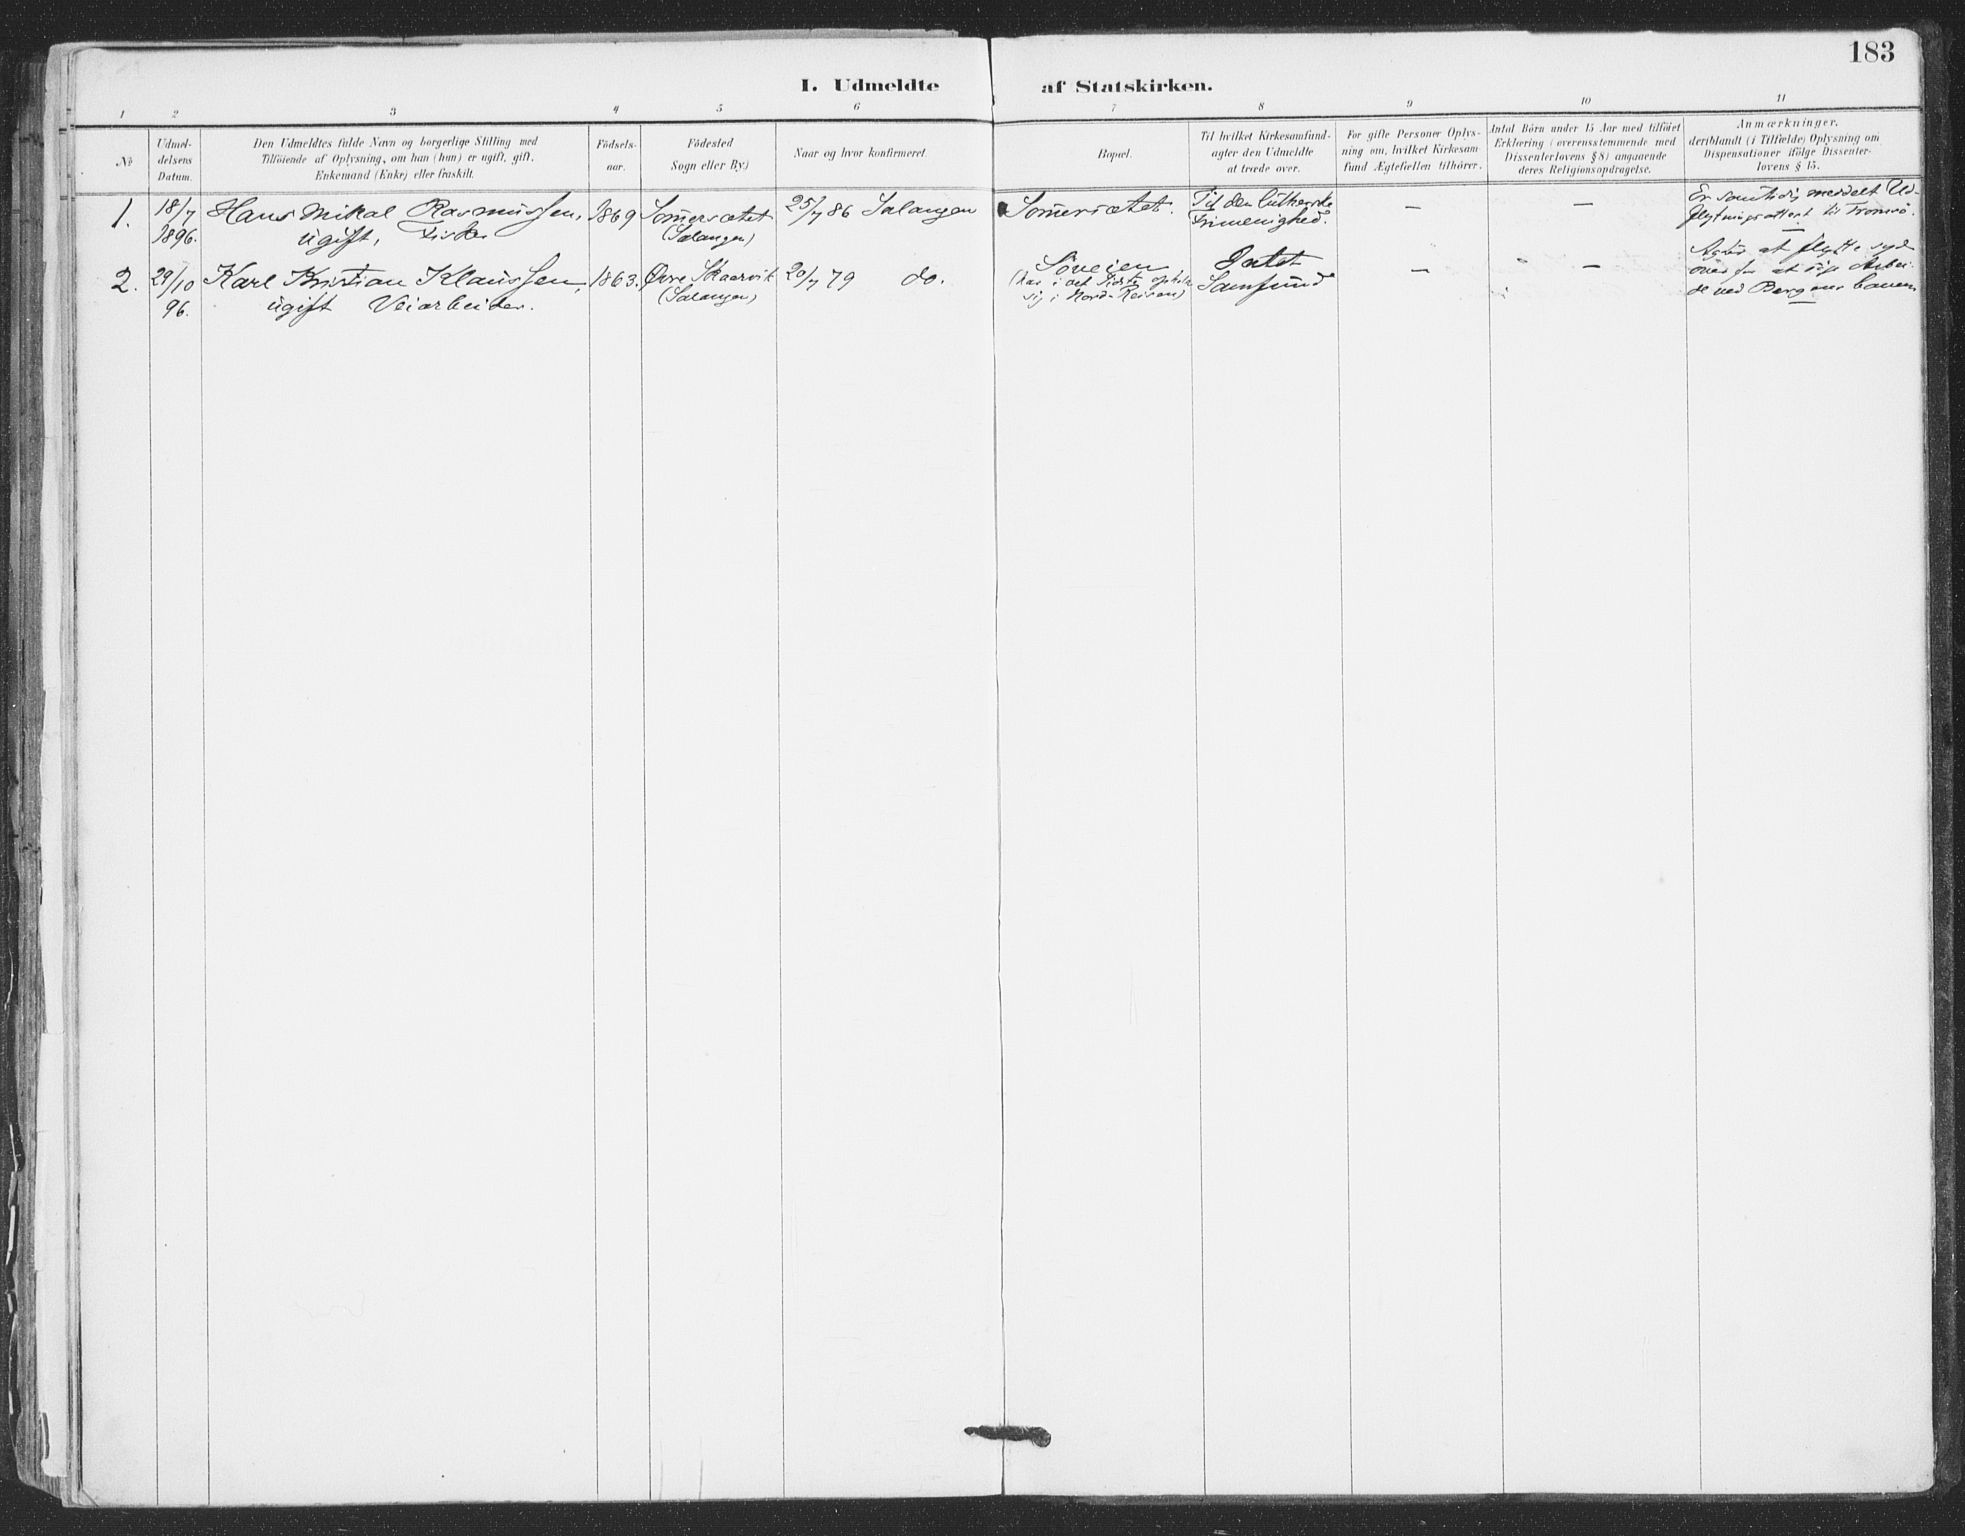 183
I. Udmeldte af Statskirken.
1 2 3 4 5 6 7 8 9 10 11
№
Udmel-
delsens
Datum.
Den Udmeldtes fulde Navn og borgerlige Stilling med
Tilföiende af Oplysning, om han (hun) er ugift, gift,
Enkemand (Enke) eller fraskilt.
Födsels-
aar.
Födested
Sogn eller By.)
Naar og hvor konfirmeret.
Bopæl.
Til hvilket Kirkesamfund-
agter den Udmeldte
at træde over.
For gifte Personer Oplys-
ning om, hvilket Kirkesam-
fund Ægtefællen tilhörer.
Antal Börn under 15 Aar med tilföiet
Erklæring (overensstemmende med
Dissenterlovens § 8) angaaende
deres Religionsopdragelse.
Anmærkninger,
deriblandt (i Tilfælde) Oplysning om
Dispensationer ifölge Dissenter-
lovens § 15.
1.
18/7
1896.
Hans Mikal Rasmussen,
ugift, Fisker
1869
Somersætet
(Salangen)
25/7 86 Salangen
Somersætet.
Til den lutherske
Frimenighed.
—
—
Er samtidig meddelt Ud-
flytningsattest til Tromsö.
2.
29/10
96.
Karl Kristian Klaussen,
ugift Veiarbeider.
1863.
Øvre Skaarvik
(Salangen)
20/7 79 do.
Söveien
(har i det sidste opholdt
sig i Nord-Reisen)
Intet
Samfund
—
—
Agter at flytte syd
over for at söge Arbei-
de ved Bergens banen.